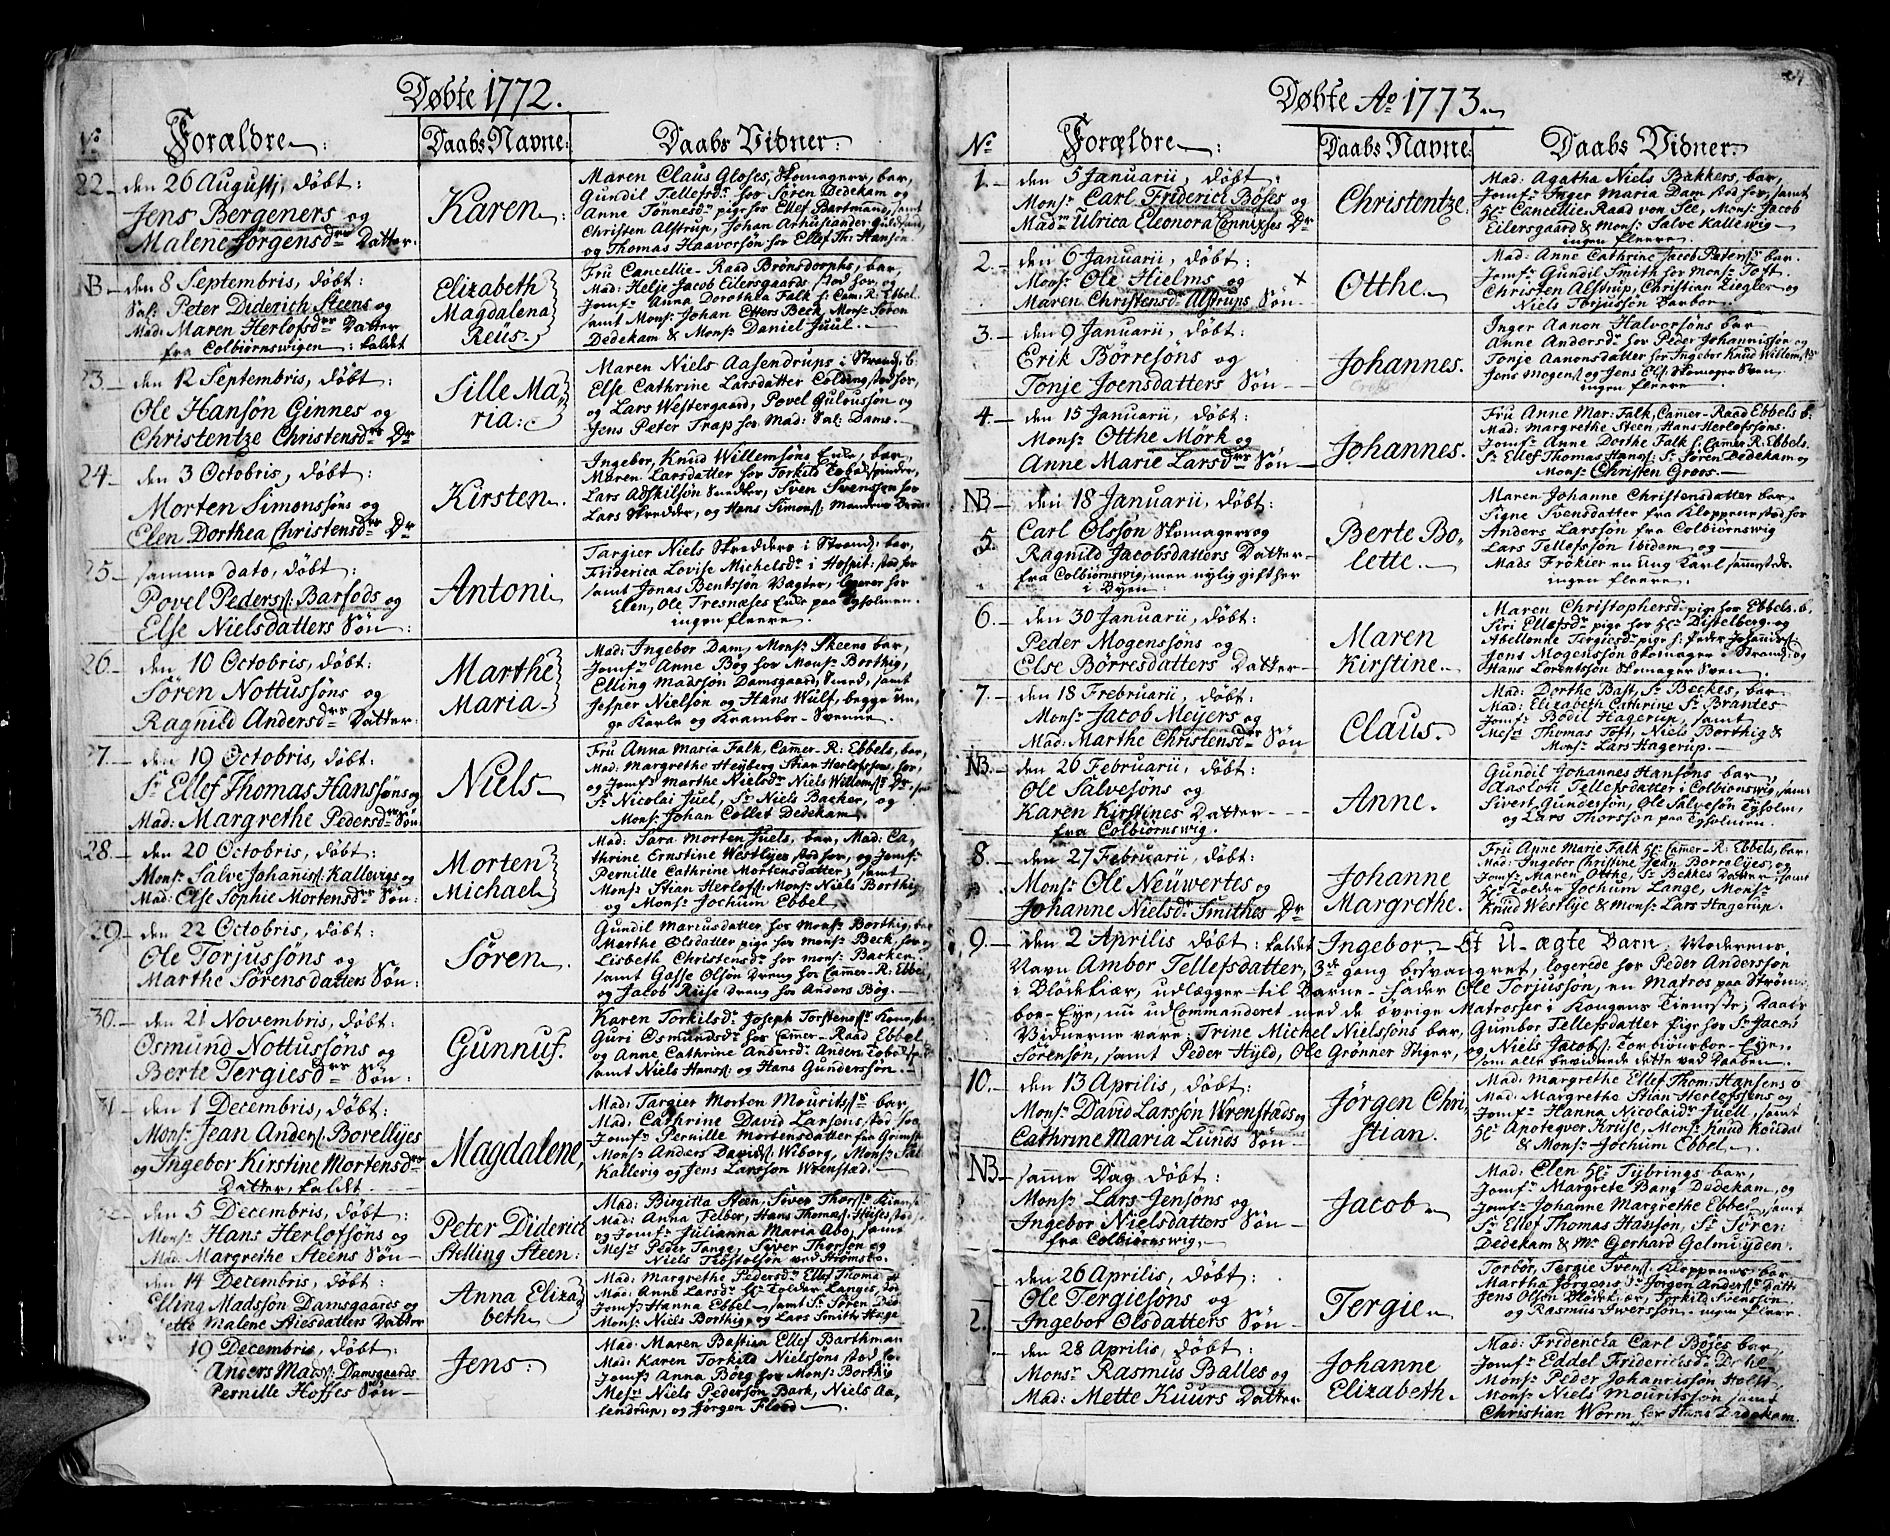 Døbte 1772.
No Forældre: Daabs Navne: Daabs Vidner:
22. den 26 Augusti, døbt:
Jens Bergeners og
Malene Jørgensdr Datter:
Karen:
Maren Claus Gloses, Skomagers, bar,
Gundil Tellefsdr hos Søren Dedekam og
Anne Tønnesdr pige hos Ellef Bartmand, samt
Christen Alstrup, Johan Arhusiander Guldsmed,
og Thomas Haavorsøn hos Ellef Th: Hansøn.
NB den 8 Septembris, døbt:
Sal: Peter Diderich Steens og
Mad: Maren Herlofsdrs Datter
fra Colbiørnswigen: kaldet
Elizabeth
Magdalena
Reüs
Fru Cancellie-Raad Brønsdorphs, bar,
Mad: Helje Jacob Eilersgaards stod hos, og
Jomfr Anna Dorothea Falk f: Cam: R: Ebbel
samt Monsr Johan Etters Beck, Monsr Søren
Dedekam & Monsr Daniel Juul.
23. den 12 Septembris, døbt:
Ole Hansøn Ginnes og
Christentze Christensdrs Dr
Sille Ma
ria:
Maren Niels Aasendrups i Strand: b:
Else Cathrine Larsdatter Colding stod hos,
og Lars Westergaard, Povel Gulvusson og
Jens Peter Trap hos Mad: Sal: Dams.
24. den 3 Octobris, døbt:
Morten Simonssøns og
Elen Dorthea Christensdrs Dr
Kirsten
Ingebor, Knud Willemsøns Enke, bar,
Maren Larsdatter hos Torkild Tobakspinder,
Lars Adskilsøn Smedker, Sven Svenssen hos
Lars Skredder, og Hans Simons:
25. samme dato, døbt:
Povel Peders: Barfods og
Else Nielsdatters Søn:
Antoni
Targier Niels Skredders i Strand: bar,
Friderica Lovise Michelsdr i Hospit: stod hos
samt Jonas Bentsøn Vagter, logerer hos
Elen, Ole Tresnæses Enke paa Tyholmen.
ingen fleere.
26. den 10 Octobris, døbt:
Søren Nottussøns og
Ragnild Andersdrs Datter:
Marthe
Maria
Mad: Ingebor Dam, Monsr Skeens bar,
Jomfr Anne Bøg hos Monsr Borthig,
Elling Madsøn Damsgaard, Snerd, samt
Jesper Nielsøn og Hans Wulf, begge un
ge Karle og Krambor-Svenne.
27. den 19 Octobris, døbt:
Sr Ellef Thomas Hanssøns og
Mad: Margrethe Pedersdrs Søn
Niels
Fru Anna Maria Falk, Camer-R: Ebbels, bar,
Mad: Margrethe Heyberg Stian Herlofssøn, hos,
og Jomfr Marthe Nielsdr Niels Willems: Dr
Sr Nicolai Juel, Sr Niels Backer, og
Monsr Johan Collet Dedekam.
28. den 20 Octobris, døbt:
Monsr Salve Johanis: Kallevigs og
Mad: Else Sophie Mortensdrs Søn:
Morten
Michael
Mad: Sara Morten Juels, bar, Mad: Ca,
thrine Ernstine Westlyes stod hos, og Jomfr
Pernille Cathrine Mortensdatter; samt
Monsr Stian Herlofs: Monsr Niels Borthig
og Monsr Jochum Ebbel.
29. den 22 Octobris, døbt:
Ole Torjussøns og
Marthe Sørensdatters Søn:
Søren.
Gundil Marcusdatter hos Monsr Borthig, bar
Marthe Olsdatter pige hos monsr Beck, hos,
Lisbeth Christensdr hos monsr Backer
samt Gasse Olsøn Dreng hos Camer-R: Ebbel
og Jacob Riise Dreng hos Anders Bøg.
30. den 21 Novembris, døbt:
Osmund Nottussøns og
Berte Tergiesdrs Søn:
Gunnuf.
Karen Torkilsdr Joseph Torstens: Kone, bar
Guri Osmundsdr hos Camer-Raad Ebbel
og Anne Cathrine Andersdr Anders
samt Niels Hans: og Hans Gunderssøn.
31. den 1 Decembris, døbt:
Monsr Jean Anders: Borellyes
og Ingebor Kirstine Mortensdrs
Datter, kaldet
Magdalene,
Mad: Targier Morten Mourits: bar,
Mad: Cathrine David Larsens, stod hos
Jomfr Pernille Mortensdatter fra Grimst
Monsr Anders Davids: Wiborg, Monsr Sal
Kallevig og Jens Larsson Wrenstad.
den 5 Decembris, døbt:
Monsr Hans Herlofsøns og
Mad: Margrethe Steens Søn
Peter Diderich
Stelling Steen:
Mad: Birgitta Steen, Siver
Mad: Anna Felber, Hans Thomas: Huses, stod
og Jomfr Julianna Maria Abo, samt
Mesr Peder Tange, Siver Thorsøn og
Niels Tostolsøn ved Strømsbo.
den 14 Decembris, døbt:
Elling Madssøn Damsgaards og
Mette Malene Stiesdatters Datter
Anna Eliza
beth
Mad: Margrethe Pedersdr Ellef Thoma
Mad: Anne Larsdr Hr Tolder Langes, stod
Jomfr Hanna Ebbel, samt Sr Søren Ded
Monsr Niels Borthig, og Lars Smith Hage
19 Decembris, døbt:
Anders Mads: Damsgaards
Pernille Hoffes Søn
Jens:
Mad: Maren Bastian Ellef Barthman
Mad: Karen Torkild Nielssøns stod ho
Jomfr Anna Bøeg hos Monsr Borthig
Mesr Niels Pedersøn Bark, Niels Aa,
sendrup, og Jørgen Flood.
Døbte Ao 1773.
No Forældre: Daabs Navne: Daabs Vidner:
1. den 5 Januarii, døbt:
Monsr Carl Friderici Bøses og
Madm Ulrica Eleonora Connixses Dr
Christentze.
Mad: Agatha Niels Bakkers, bar,
Jomfr Inger Maria Dam stod hos, samt
Hr Cancellie-Raad von See, Monsr Jacob
Eilersgaard & Monsr Salve Kallewig
ingen fleere.
2. den 6 Januarii, døbt:
Monsr Ole Hielms og
Maren Christensdr Alstrups Søn
Otthe.
Mad: Anne Cathrine Jacob Peters: bar.
Jomfr Gundil Smith hos Monsr Toft.
Christen Alstrup, Christian Ziegler og
Niels Torjussøn Barber.
3. den 9 Januarii, døbt:
Erik Børresøns og
Tonje Joensdatters Søn
Johannes.
Inger Aanon Halvorsøns bar
Anne Andersdr hos Peder Johannissøn og
Tonje Aanonsdatter hos Ingebor Knud Willems
Jens Mogens: og Jens Ols: Skomager Sven.
ingen fleere.
4. den 15 Januarii, døbt:
Monsr Otthe Mørk og
Anne Marie Larsdrs Søn
Johannes.
Fru Anne Mar: Falk, Camer-Raad Ebbels b.
Mad: Margrethe Steen, Hans Herlofsøns.
Jomfr Anne Dorthe Falk f: Camer R: Ebbels.
Sr Ellef Thomas Hans: Sr Søren Dedekam og
Monsr Christen Groos.
NB. den 18 Januarii, døbt:
5. Carl Olssøn Skomagers og
Ragnild Jacobsdatters Datter
fra Colbiørnswig, men nylig gift her
i Byen:
Berte Bo,
lette.
Maren Johanne Christensdatter bar,
Signe Svensdatter fra Kloppene stod hos
Anders Larssøn fra Colbiørnswig
Lars Tellefssøn ibidem og
Mads Frøkier en ung Karl samstæds.
ingen fleere.
6. den 30 Januarii, døbt:
Peder Mogenssøns og
Else Børresdatters Datter
Maren
Kirstine.
Maren Christophersdr pige hos Ebbels. b.
Siri Ellefsdr pige hos Hr Distelberg og
Abellonne Tergiesdr pige f: Peder Johannis:
Jens Mogenssøn Skomager i Strand: og
Hans Lorentssøn Skomager Sven.
7. den 18 Februarii, døbt:
Monsr Jacob Meyers og
Mad: Marthe Christensdrs Søn
Claus.
Mad: Dorthe Bast, Sr Beckes, bar
Mad: Elizabeth Cathrine Sr Brantes
Jomfr Bodil Hagerup, samt
Mesr Thomas Toft, Niels Borthig &
Monsr Lars Hagerup.
NB. den 26 Februarii, døbt:
Ole Salvesøns og
Karen Kirstines Datter
fra Colbiørnswig.
Anne.
Gundil Johannes Hansøns bar
Aaslou Tellefsdatter i Colbiørnswig, samt
Sivert Gundersøn, Ole Salvesøn Tyholm,
og Lars Thorssøn paa Tyholmen.
8. den 27 Februarii, døbt:
Monsr Ole Neüwertes og
Johanne Nielsdr Smithes Dr
Johanne
Margrethe.
Fru Anne Marie Falk Hr Camer-R: Ebbels, bar.
Mad: Ingebor Christine Jean Borrelyes, og
Jomfr Maren Otthe, Sr Bekkes Datter, samt
Hr Tolder Jochum Lange, Monsr
Knud Westlye & Monsr Lars Hagerup.
9. den 2 Aprilis døbt: kaldet Ingebor Et U-ægte Barn, Moderens
Navn Ambor Tellefsdatter, 3de gang besvangret, logerede hos Peder Anderssøn
i Blødekiær, udlægger til Barne-Fader Ole Torjussøn, en Matros paa Strøms
boe-Eye, nu udCommanderet med de øvrige Matrosser i Kongens Tienste; Daabs
Vidnerne vare: Trine Michel Nielssøns bar, Gumbor Tellefsdatter Pige hos Sr Jacob
Sørensøn, samt Peder Hyld, Ole Grønner Stiger, og Niels Jacobs: Torbiønsboe-Eye.
som alle bevidnede dette ved Daaben.
10. den 13 Aprilis, døbt:
Monsr David Larssøn Wrenstads og
Cathrine Maria Lunds Søn
Jørgen Chri,
stian.
Mad: Margrethe Ellef Thom: Hansens b
Mad: Margrethe Stian Herlofssens og
Jomfr Hanna Nicolaidr Juell, samt
Hr Apoteqver Kruse, Monsr Knud
& Monsr Jochum Ebbel.
NB. samme Dag døbt:
Monsr Lars Jensøns og
Ingebor Nielsdatters Søn
fra Colbiørnswig.
Jacob
Mad: Elen Hr Tybrings bar,
Jomfr Margrete Bang Dedekam, og
Jomfr Johanne Margrethe Ebbel, samt
Sr Ellef Thomas Hanssøn, Sr Søren
Dedekam & Mr Gerhard Gelmuyden.
den 26 Aprilis, døbt:
2. Ole Tergiesøns og
Ingebor Olsdatters Søn
Tergie
Torbor, Tergie Svens: Kloppenes bar
Martha Jørgensdr Jørgen Anders: Datte
Jens Olsøn Blødekiær, Torkild Svensson
og Rasmus Iwerssøn. ingen fleere
den 28 Aprilis, døbt:
Monsr Rasmus Balles og
Mad: Mette Kuurs Datter
Johanne
Elizabeth.
Mad: Fridericia Carl Bøses bar,
Jomfr Eddel Friderichsdr
Monsr Peder Johannissøn Holst
Monsr Niels Mouritssøn, samt
Christian Worm, hos Hans Dedekam.